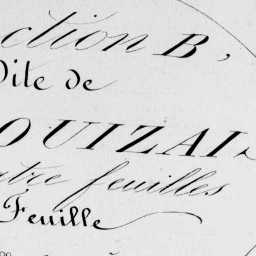 ction B,
Dite de
OUIZAI
tre feuilles
Feuille